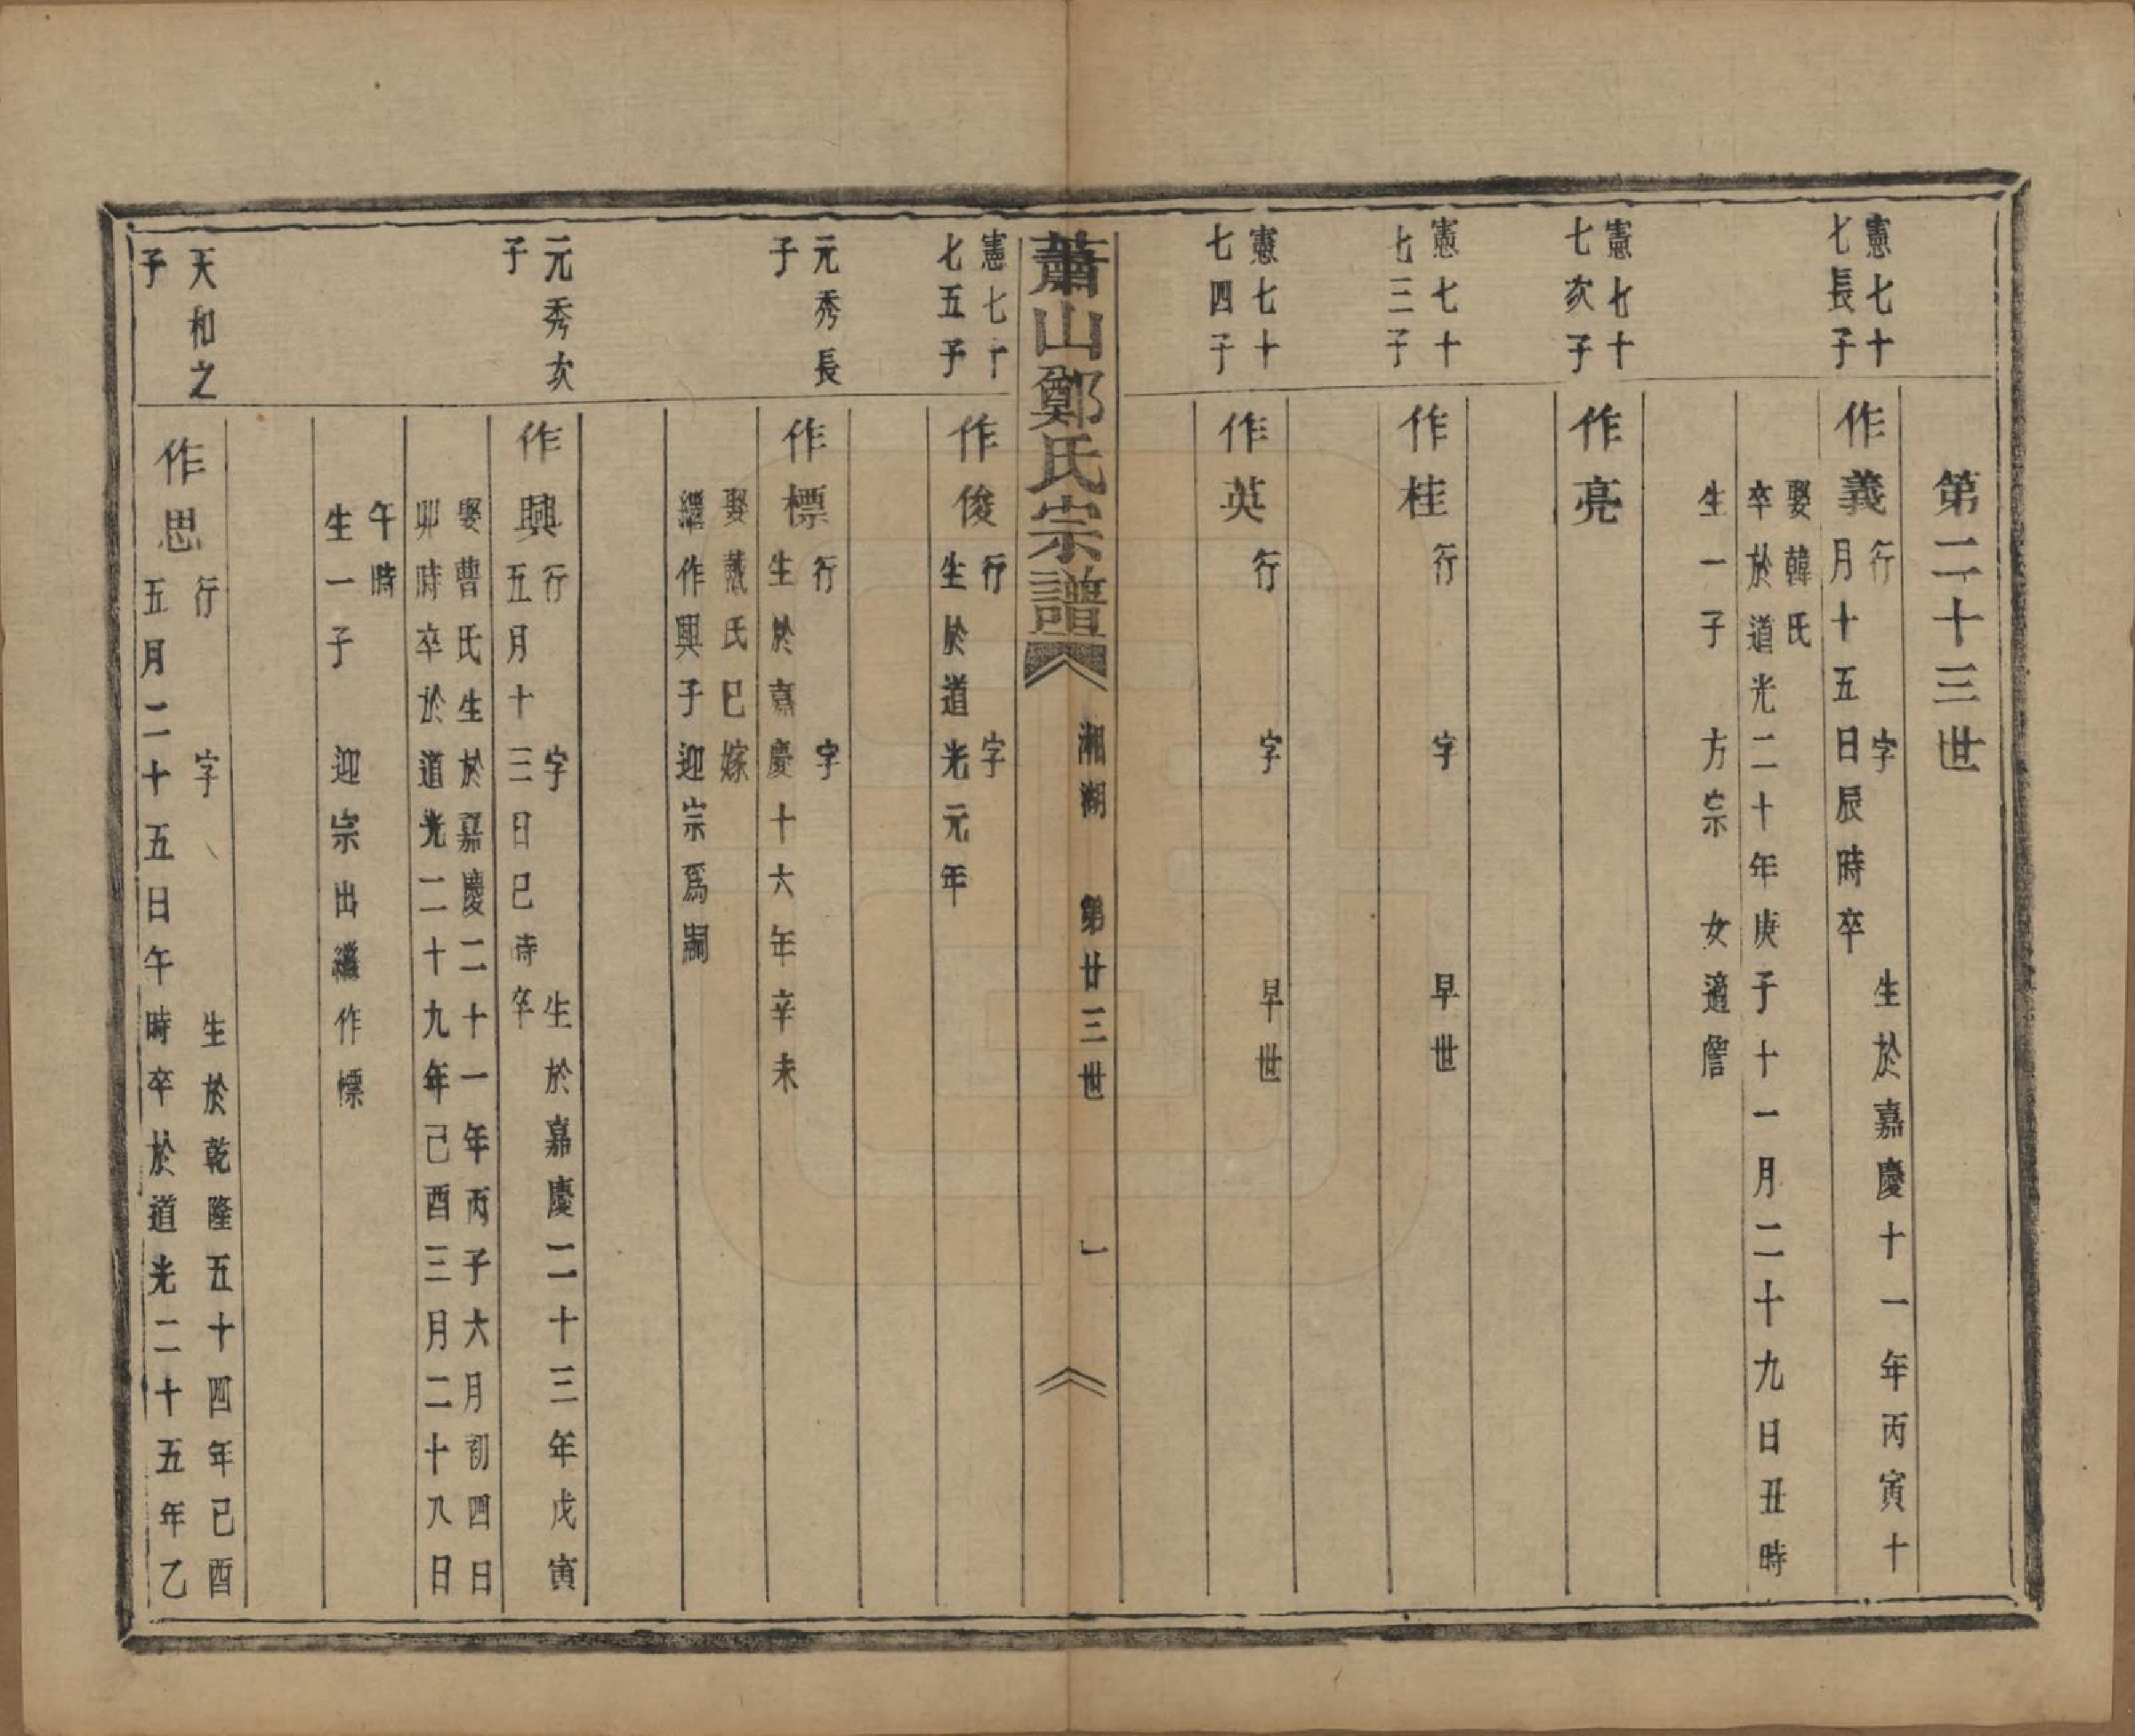 第二十三世
憲七十
七長子
作義
行　字　生於嘉慶十一年丙寅十
月十五日辰時卒
娶韓氏
卒於道光二十年庚子十一月二十九日丑時
生一子　方宗　女適詹
憲七十
七次子
作亮
憲七十
七三子
作桂
行　字　早世
憲七十
七四子
作英
行　字　早世
蕭山鄭氏宗譜
湘湖　第廿三世　一
憲七十
七五子
作俊
行　字
生於道光元年
元秀長
子
作標
行　字
生於嘉慶十六年辛未
娶戴氏已嫁
繼作興子迎宗爲嗣
元秀次
子
作興
行　字　生於嘉慶二十三年戊寅
五月十三日巳時卒
娶曹氏生於嘉慶二十一年丙子六月初四日
卯時卒於道光二十九年己酉三月二十八日
午時
生一子　迎宗出繼作標
天和之
子
作思
行　字　生於乾隆五十四年己酉
五月二十五日午時卒於道光二十五年乙